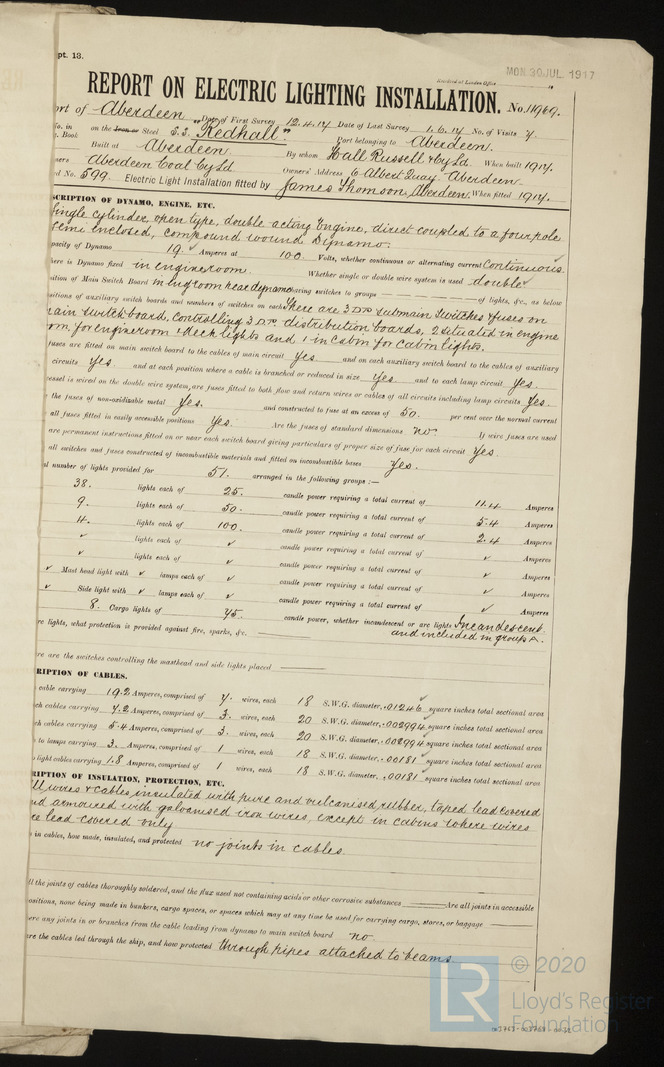 pt. 13.
Received at London Office
MON 30 JUL 1917
REPORT ON ELECTRIC LIGHTING INSTALLATION. No. 11969.
ort of Aberdeen Date of First Survey 12.4.17 Date of Last Survey 1.6.17 No. of Visits 7.
on the Iron or Steel S.S. "Redhall." Port belonging to Aberdeen.
. Book Built at Aberdeen By whom Hall Russell & Cy Ld. When built 1917.
ners Aberdeen Coal Cy Ld Owners' Address 6 Albert Quay Aberdeen.
d No. 599. Electric Light Installation fitted by James Thomson, Aberdeen, When fitted 1917.
SCRIPTION OF DYNAMO, ENGINE, ETC.
Single cylinder, open type, double acting Engine, direct coupled to a four pole
Semi enclosed, compound wound Dynamo.
pacity of Dynamo 19. Amperes at 100 Volts, whether continuous or alternating current Continuous
here is Dynamo fixed in engineroom. Whether single or double wire system is used double
sition of Main Switch Board in eng room near dynamo having switches to groups of lights, &c., as below
sitions of auxiliary switch boards and numbers of switches on each There are 3 D.P. submain switches & fuses on
main switchboard, controlling 3 D.P. distribution boards, 2 situated in engine
rom, for engineroom & deck lights and 1 in cabin for cabin lights.
fuses are fitted on main switch board to the cables of main circuit Yes and on each auxiliary switch board to the cables of auxiliary
circuits Yes and at each position where a cable is branched or reduced in size Yes and to each lamp circuit Yes.
vessel is wired on the double wire system, are fuses fitted to both flow and return wires or cables of all circuits including lamp circuits Yes.
the fuses of non-oxidizable metal Yes. and constructed to fuse at an excess of 50. per cent over the normal current
all fuses fitted in easily accessible positions Yes. Are the fuses of standard dimensions no. If wire fuses are used
are permanent instructions fitted on or near each switch board giving particulars of proper size of fuse for each circuit Yes.
all switches and fuses constructed of incombustible materials and fitted on incombustible bases Yes.
al number of lights provided for 51. arranged in the following groups :—
38. lights each of 25. candle power requiring a total current of 11.4 Amperes
9. lights each of 50. candle power requiring a total current of 5.4 Amperes
4. lights each of 100. candle power requiring a total current of 2.4 Amperes
✓ lights each of ✓ candle power requiring a total current of ✓ Amperes
✓ lights each of ✓ candle power requiring a total current of ✓ Amperes
✓ Mast head light with ✓ lamps each of ✓ candle power requiring a total current of ✓ Amperes
✓ Side light with ✓ lamps each of ✓ candle power requiring a total current of ✓ Amperes
8. Cargo lights of 75. candle power, whether incandescent or arc lights Incandescent.
rc lights, what protection is provided against fire, sparks, &c. — and included in groups A.
re are the switches controlling the masthead and side lights placed —
RIPTION OF CABLES.
cable carrying 19.2 Amperes, comprised of 7. wires, each 18 S.W.G. diameter, .01246 square inches total sectional area
ch cables carrying 7.2 Amperes, comprised of 3. wires, each 20 S.W.G. diameter, .002994 square inches total sectional area
ch cables carrying 5.4 Amperes, comprised of 3. wires, each 20 S.W.G. diameter, .002994 square inches total sectional area
to lamps carrying 3. Amperes, comprised of 1 wires, each 18 S.W.G. diameter, .00181 square inches total sectional area
light cables carrying 1.8 Amperes, comprised of 1 wires, each 18 S.W.G. diameter, .00181 square inches total sectional area
RIPTION OF INSULATION, PROTECTION, ETC.
ll wires & cables insulated with pure and vulcanised rubber, taped lead covered
nd armoured with galvanised iron wires, except in cabins where wires
re lead covered only
in cables, how made, insulated, and protected no joints in cables.
ll the joints of cables thoroughly soldered, and the flux used not containing acids or other corrosive substances — Are all joints in accessible
ositions, none being made in bunkers, cargo spaces, or spaces which may at any time be used for carrying cargo, stores, or baggage —
ere any joints in or branches from the cable leading from dynamo to main switch board no
re the cables led through the ship, and how protected through pipes attached to beams.
LR © 2020
Lloyd's Register
Foundation